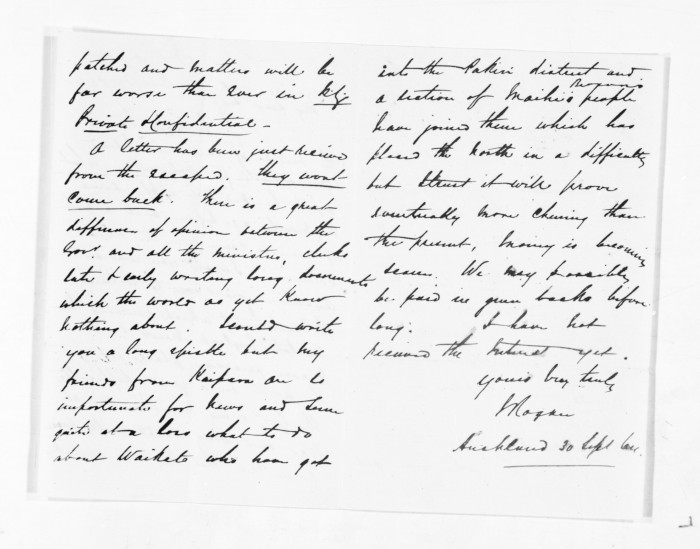 patched and matters will be
far worse than ever in
Private & Confidential -
A letter has been just received
from the escaped. They wont
come back. There is a great
difference of opinion between the
Govr. and all the ministers, clerks
late & early writing long documents
which the world as yet know
nothing about. I could write
you a long epistle but my
friends from Kaipara are so
importunate for news and seem
quite at a loss what to do
about Waikato who have got
into the Pakiri district and
a section of people
have joined them which has
placed the North in a difficulty
but I trust it will prove
eventually more cheering than
the present, money is becoming
scarce. We may possibly
be paid in green backs before
long. I have not
received the yet.
Yours very truly
J Rogan
Auckland 30 Sept